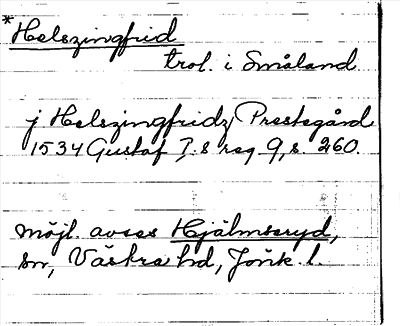 *Helszingfrid
trol. i Småland
j Helszingfridz Prestegård
1534 Gustaf I:s reg 9, s. 260.
möjl. avses Hjälmseryd,
sn, Västra hd, Jönk. l.